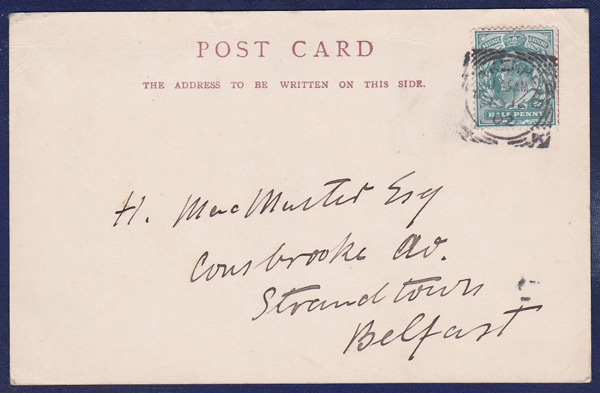 POST CARD
THE ADDRESS TO BE WRITTEN ON THIS SIDE.
HALF PENNY
H. MacMaster Esq
Consbrooke Av.
Strandtown
Belfast